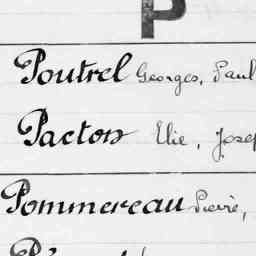 P
Poutrel Georges, Paul
Pacton Elie, Josep
Pommereau Pierre,